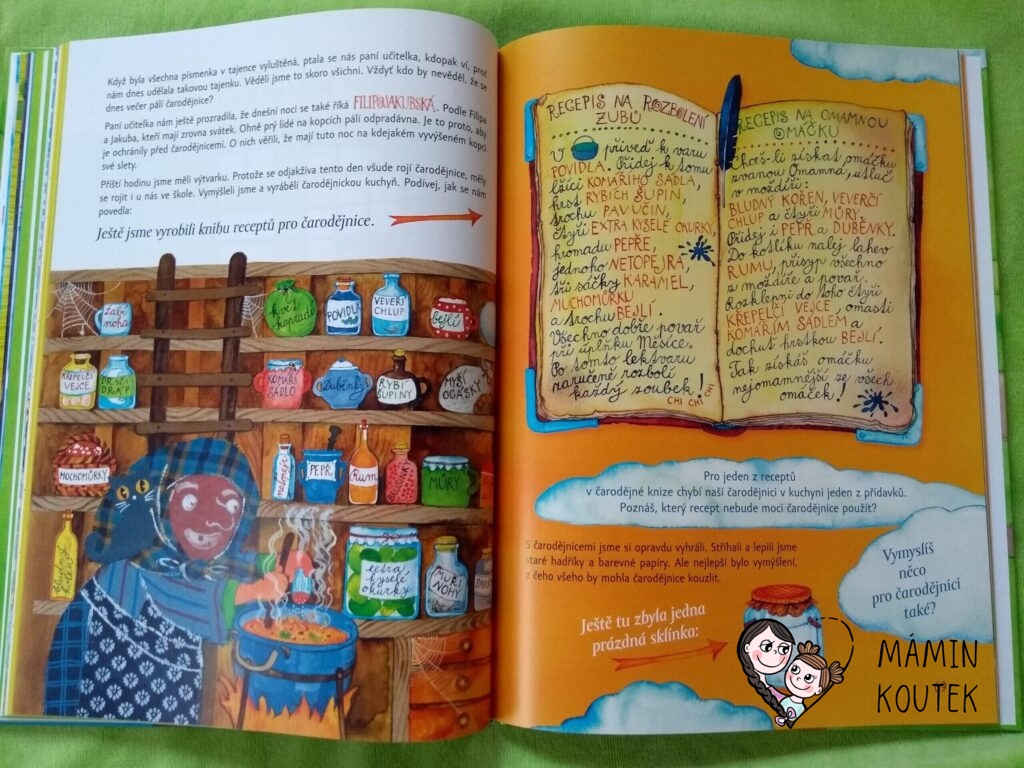 Když byla všechna písmenka v tajence vyluštěná, ptala se nás paní učitelka, kdopak ví, proč
nám dnes udělala takovou tajenku. Věděli jsme to skoro všichni. Vždyť kdo by nevěděl, že se
dnes večer pálí čarodějnice?
Paní učitelka nám ještě prozradila, že dnešní noci se také říká FILIPOJAKUBSKÁ. Podle Filipa
a Jakuba, kteří mají zrovna svátek. Ohně prý lidé na kopcích pálí odpradávna. Je to proto, aby
je ochránily před čarodějnicemi. O nich věřili, že mají tuto noc na kdejakém vyvýšeném kopci
své slety.
Příští hodinu jsme měli výtvarku. Protože se odjakživa tento den všude rojí čarodějnice, měly
se rojit i u nás ve škole. Vymýšleli jsme a vyráběli čarodějnickou kuchyň. Podívej, jak se nám
povedla:
Ještě jsme vyrobili knihu receptů pro čarodějnice.
ŽABÍ
NOHA
květ
kapradě
POVIDLA
VEVEŘÍ
CHLUP
bejlí
KŘEPELČÍ
VEJCE
DRAČÍ
DRÁP
KOMÁŘÍ
SÁDLO
Duběnky
RYBÍ
ŠUPINY
MYŠÍ
OCÁSKY
MOCHOMŮRKY
netopejr
PEPŘ
Rum
MŮRY
Bludný
kořen
extra
kyselé
okurky
MUŘÍ
NOHY
RECEPIS NA ROZBOLENÍ
ZUBŮ
V přiveď k varu
POVIDLA. Přidej k tomu
lžíci KOMÁŘÍHO SÁDLA,
hrst RYBÍCH ŠUPIN,
trochu PAVUČIN,
čtyři EXTRA KYSELÉ OKURKY,
hromadu PEPŘE,
jednoho NETOPEJRA,
tři sáčky KARAMEL,
MUCHOMŮRKU
a trochu BEJLÍ.
Všechno dobře povař
při úplňku Měsíce.
Po tomto lektvaru
zaručeně rozbolí
každý zoubek!
CHI CHI CHI
RECEPIS NA OMAMNOU
OMÁČKU
Chceš-li získat omáčku
zvanou Omamna, utluč
v moždíři:
BLUDNÝ KOŘEN, VEVERČÍ
CHLUP a čtyři MŮRY.
Přidej i PEPŘ a DUBĚNKY.
Do kotlíku nalej lahev
RUMU, přisyp všechno
z moždíře a povař.
Rozklepni do toho čtyři
KŘEPELČÍ VEJCE, omasti
KOMÁŘÍM SÁDLEM a
dochuť hrstkou BEJLÍ.
Tak získáš omáčku
nejomamnější ze všech
omáček!
Pro jeden z receptů
v čarodějné knize chybí naší čarodějnici v kuchyni jeden z přídavků.
Poznáš, který recept nebude moci čarodějnice použít?
S čarodějnicemi jsme si opravdu vyhráli. Stříhali a lepili jsme
staré hadříky a barevné papíry. Ale nejlepší bylo vymýšlení,
z čeho všeho by mohla čarodějnice kouzlit.
Vymyslíš
něco
pro čarodějnici
také?
Ještě tu zbyla jedna
prázdná sklínka:
MÁMIN
KOUTEK